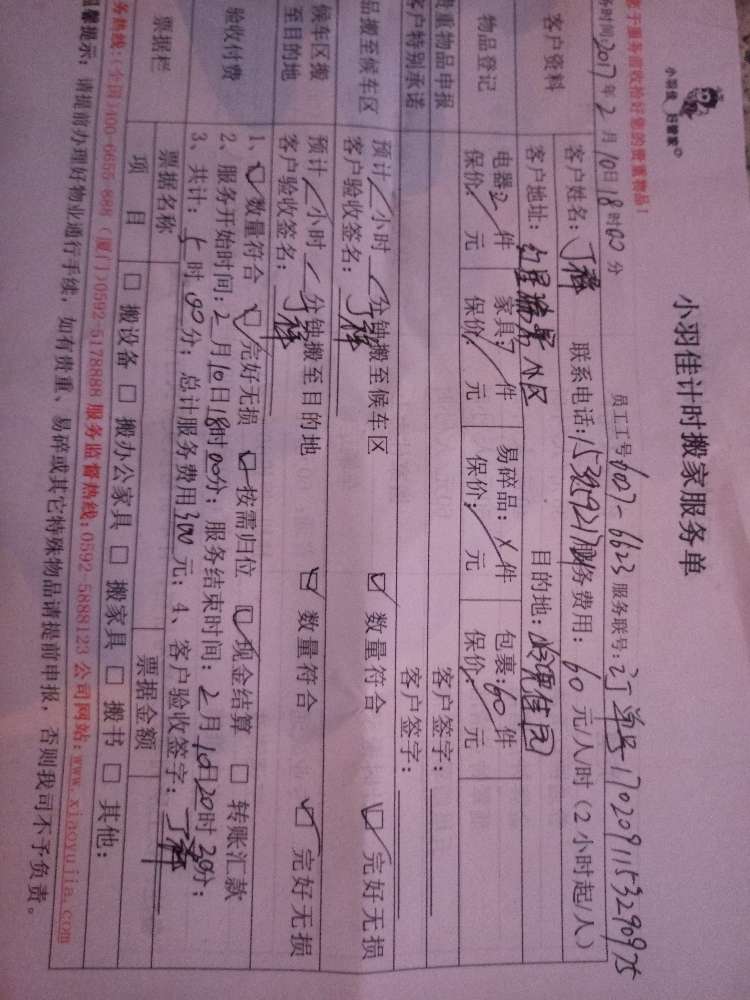 小羽佳 好管家
小羽佳计时搬家服务单
于服务前收拾好您的贵重物品!
务时间:2017年2月10日18时00分 员工工号:6027-6623 服务联号:订单号170209115329 0925
客户资料
客户姓名:丁祥 联系电话: 服务费用:60元/人/时(2小时起/人)
客户地址: 目的地:
物品登记
电器2件 家具:7件 易碎品:X件 包裹:60件
保价/元 保价/元 保价/元 保价/元
贵重物品申报 客户签字:
客户特别承诺 客户签字:
品搬至候车区
预计/小时/分钟搬至候车区 ☑数量符合 ☑完好无损
客户验收签名:丁祥
候车区搬至目的地
预计/小时/分钟搬至目的地 ☑数量符合 ☑完好无损
客户验收签名:丁祥
验收付费
1、☑数量符合 ☑完好无损 ☑按需归位 ☑现金结算 □转账汇款
2、服务开始时间:2月10日18时00分;服务结束时间:2月10日20时20分;
3、共计:5时00分;总计服务费用300元;4、客户验收签字:丁祥
票据栏
票据名称 票据金额
项目 □搬设备 □搬办公家具 □搬家具 □搬书 □其他:
务热线:(全国)400-6655-888 (厦门)0592-5178888 服务监督热线:0592-5888123 公司网站:www.xiaoyujia.com
温馨提示:请提前办理好物业通行手续,如有贵重、易碎或其它特殊物品请提前申报,否则我司不予负责。